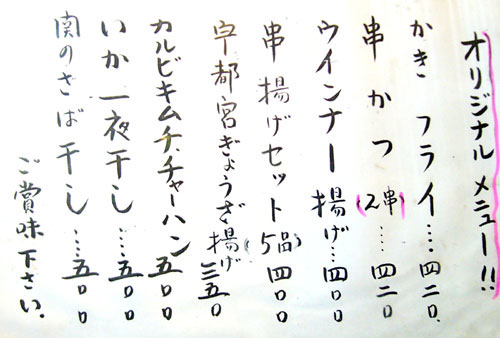 オリジナル メニュー!!
かき フライ‥‥四二〇.
串 かつ (2串)‥‥四二〇
ウインナー 揚げ‥‥四〇〇
串揚げセット(5品)四〇〇
宇都宮ぎょうざ揚げ三五〇
カルビキムチ.チャーハン五〇〇
いか一夜干し‥‥五〇〇
関のさば干し‥‥五〇〇
ご賞味下さい.